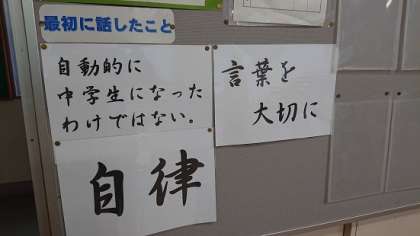 最初に話したこと
自動的に
中学生になった
わけではない。
自律
言葉を
大切に